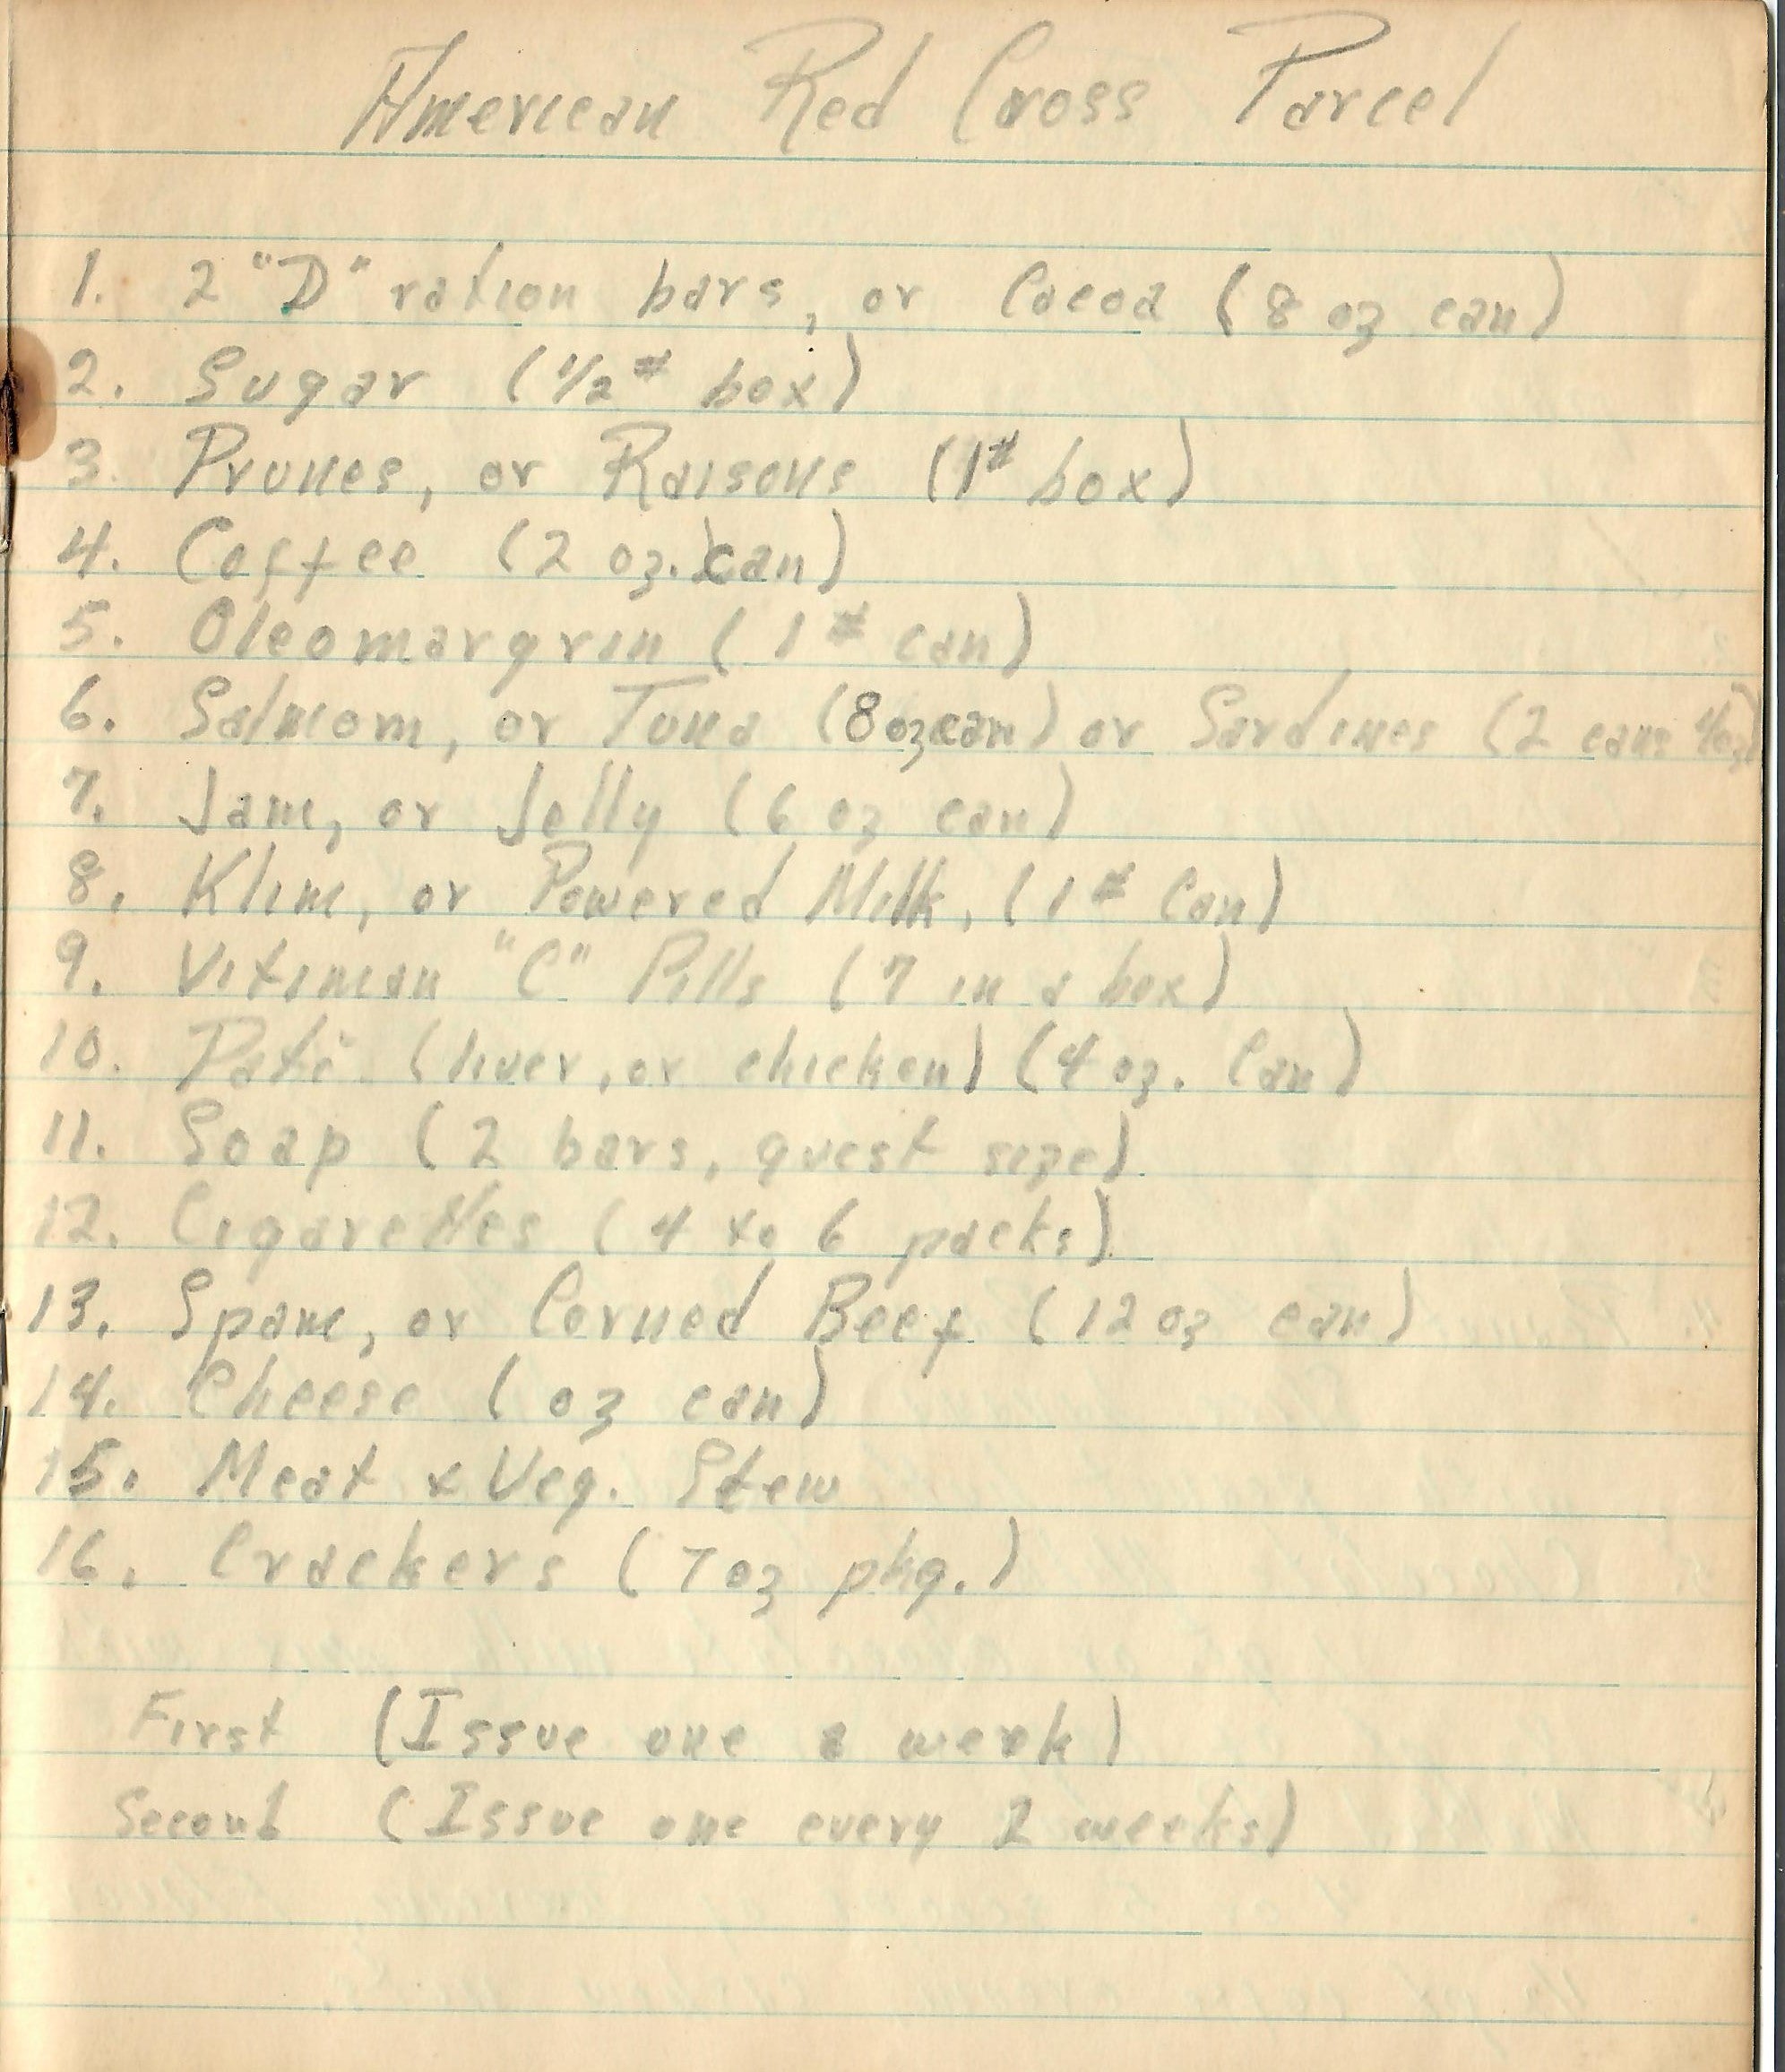 American Red Cross Parcel
1. 2 "D" ration bars, or Cocoa (8 oz can)
2. Sugar (1/2 # box)
3. Prunes, or Raisons (1# box)
4. Coffee (2 oz. can)
5. Oleomargrin (1 # can)
6. Salmom, or Tuna (8 oz can) or Sardines (2 cans 4oz)
7. Jam, or Jelly (6 oz can)
8. Klim, or Powered Milk, (1 # Can)
9. Vitiman "C" Pills (7 in a box)
10. Paté (liver, or chicken) (4 oz. Can)
11. Soap (2 bars, guest size)
12. Cigarettes (4 to 6 packs)
13. Spam, or Corned Beef (12 oz can)
14. Cheese ( oz can)
15. Meat & Veg. Stew
16. Crackers (7 oz pkg.)
First (Issue one a week)
Second (Issue one every 2 weeks)